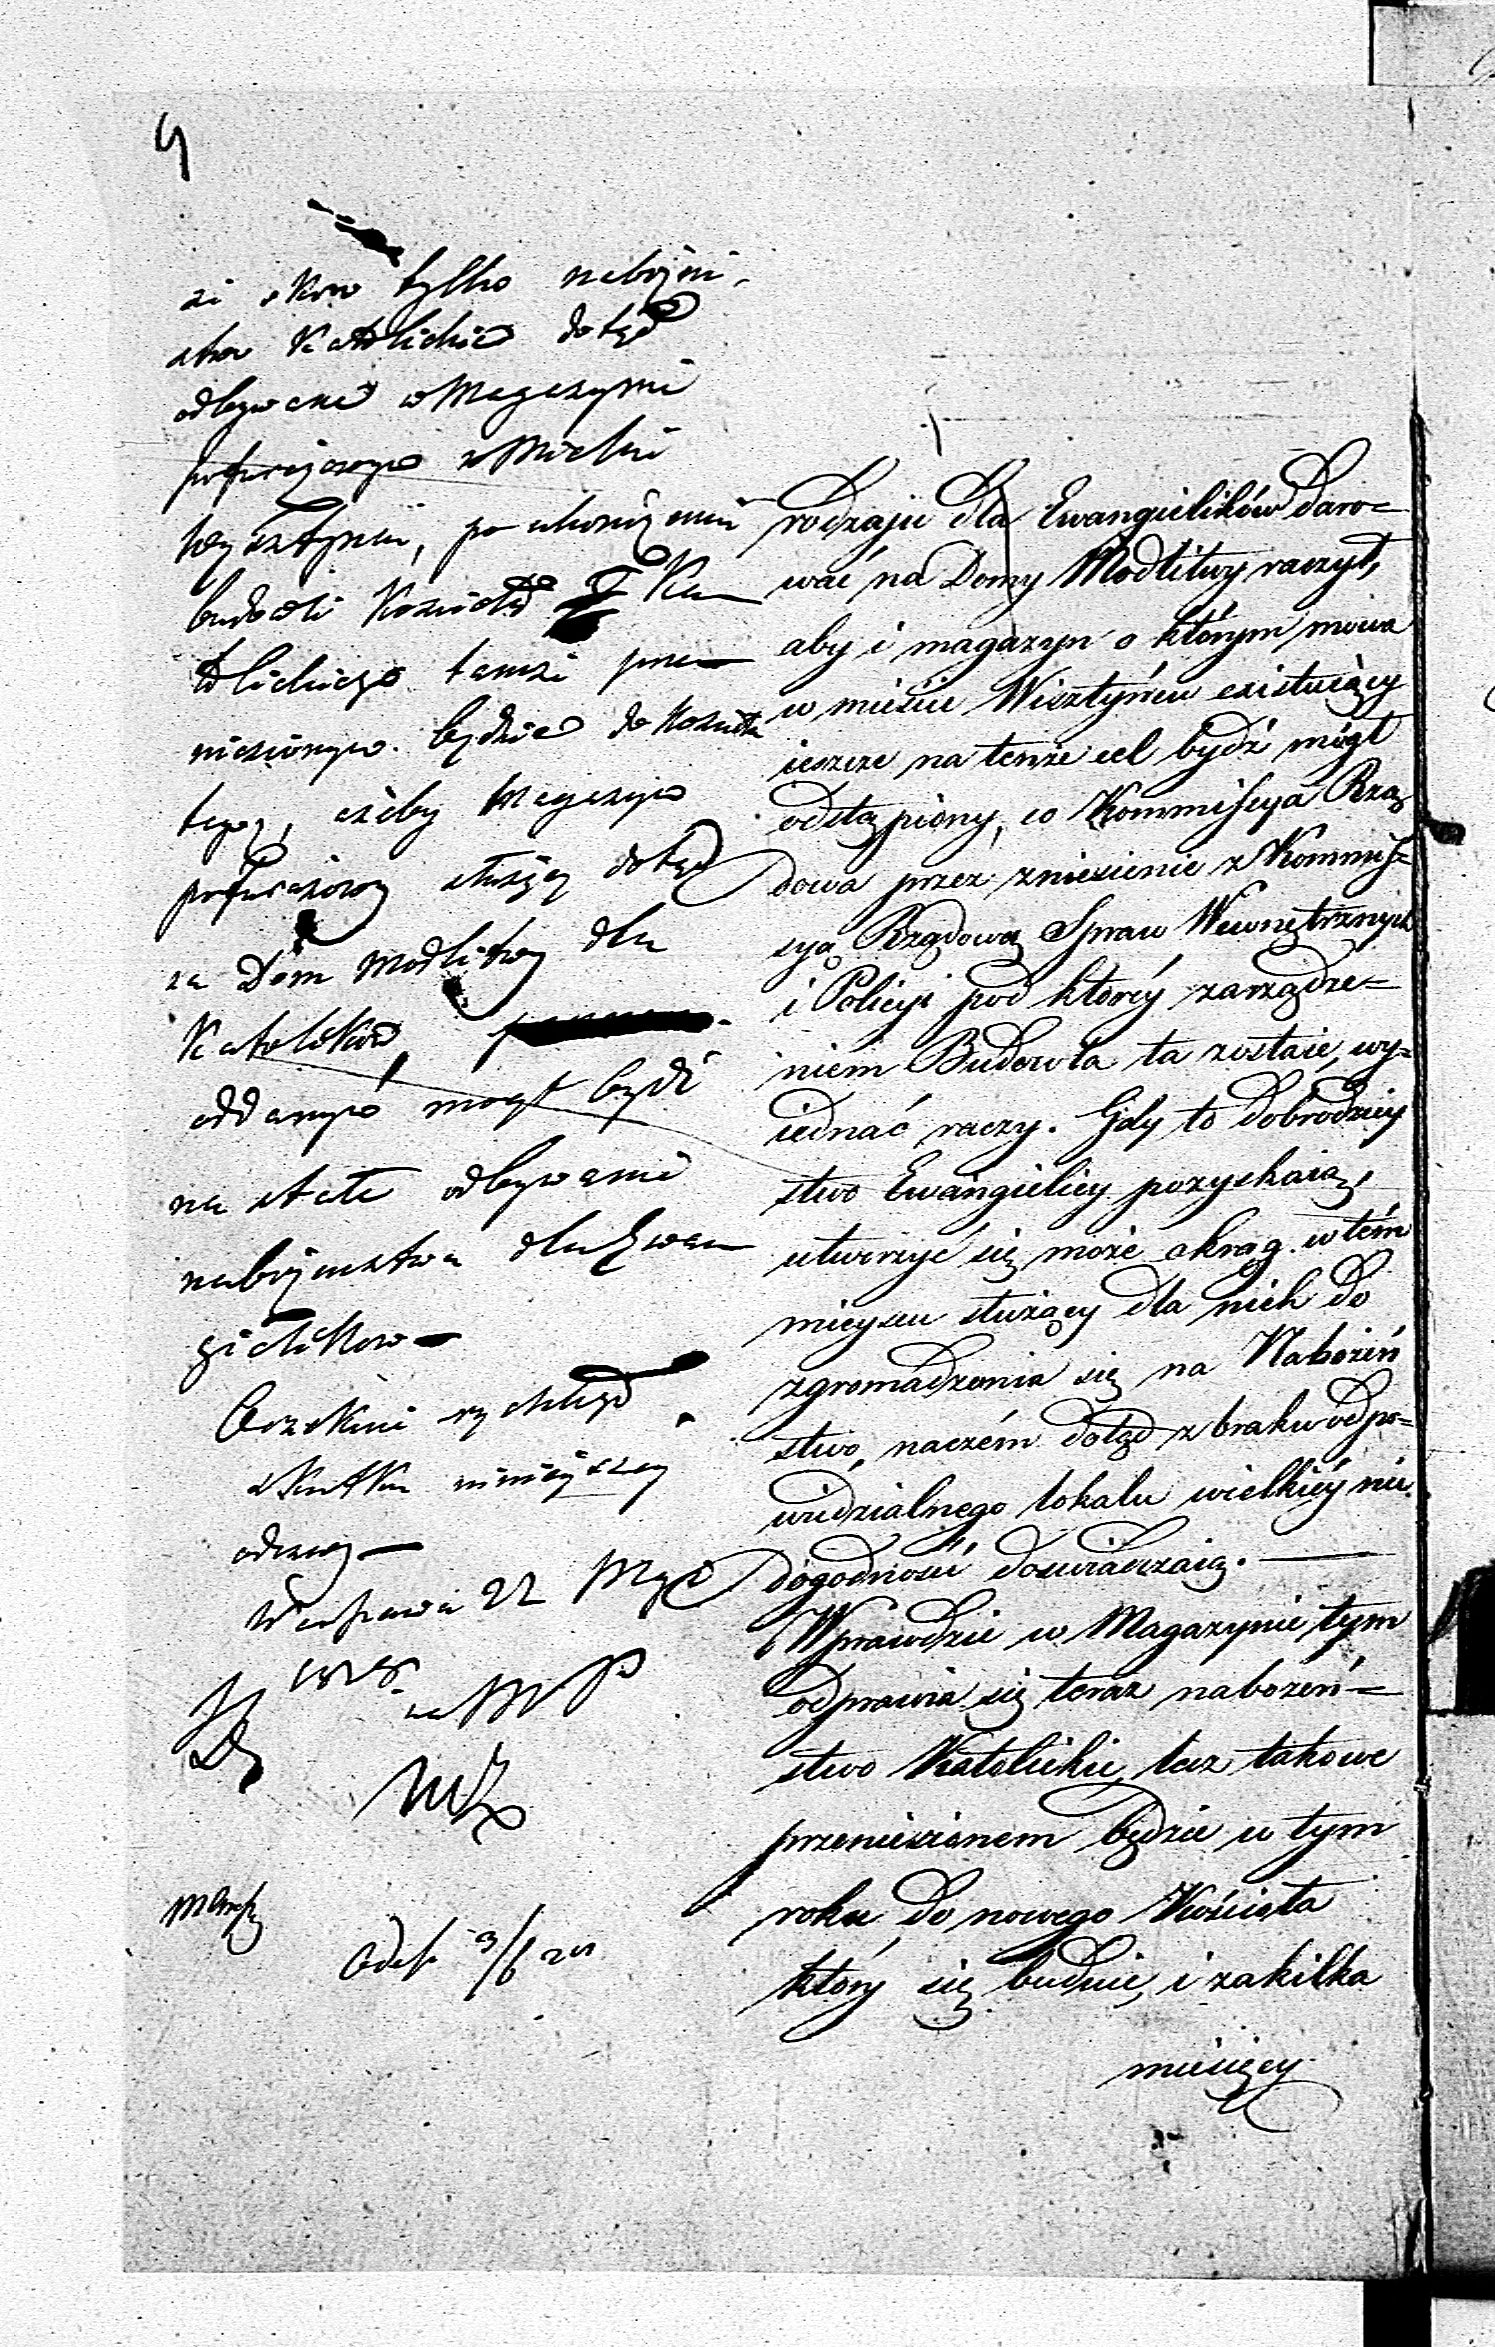 4
że skoro tylko nabożeń-
stwo Katolickie dotąd
odbywane w Magazynie
w Mieście
Wisztyniu, po ukończeniu
budowli Kościoła Ka
tolickiego tamże prze
niesionym będzie do Kościoła
tego, ażeby Magazyn
służący dotąd
za Dom Modlitwy dla
Katolików,
oddanym mógł bydź
na stałe odbywanie
nabożeństwa dla Ewan
gielików
Oczekuie rychłego
skutku ninieyszey
odezwy
Warszawa 22 Maja
1828.
Odesł. 3/6 28
rodzaju dla Ewangielików daro=
wać na Domy Modlitwy raczył,
aby i magazyn o którym mowa
w mieście Wisztyńcu existuiący
ieszcze na tenże cel bydź mógł
odstąpiony, co Kommissya Rzą
dowa przez zniesienie z Kommis=
syą Rządową Spraw Wewnętrznych
i Policyi pod któréy zarządze=
niem Budowla ta zostaie, wy=
iednać raczy. Gdy to dobrodziey
stwo Ewangielicy pozyskaią,
utworzyć się może okrąg w tém
mieyscu służący dla nich do
zgromadzenia się na Nabożeń
stwo, naczém dotąd z braku odpo=
wiedzialnego lokalu wielkiéy nie
dogodności doswiadczaią.
Wprawdzie w Magazynie tym
odprawia się teraz nabożeń=
stwo Katolickie, lecz takowe
przeniesionem będzie w tym
roku do nowego Kościoła
który się buduie, i za kilka
miesięcy